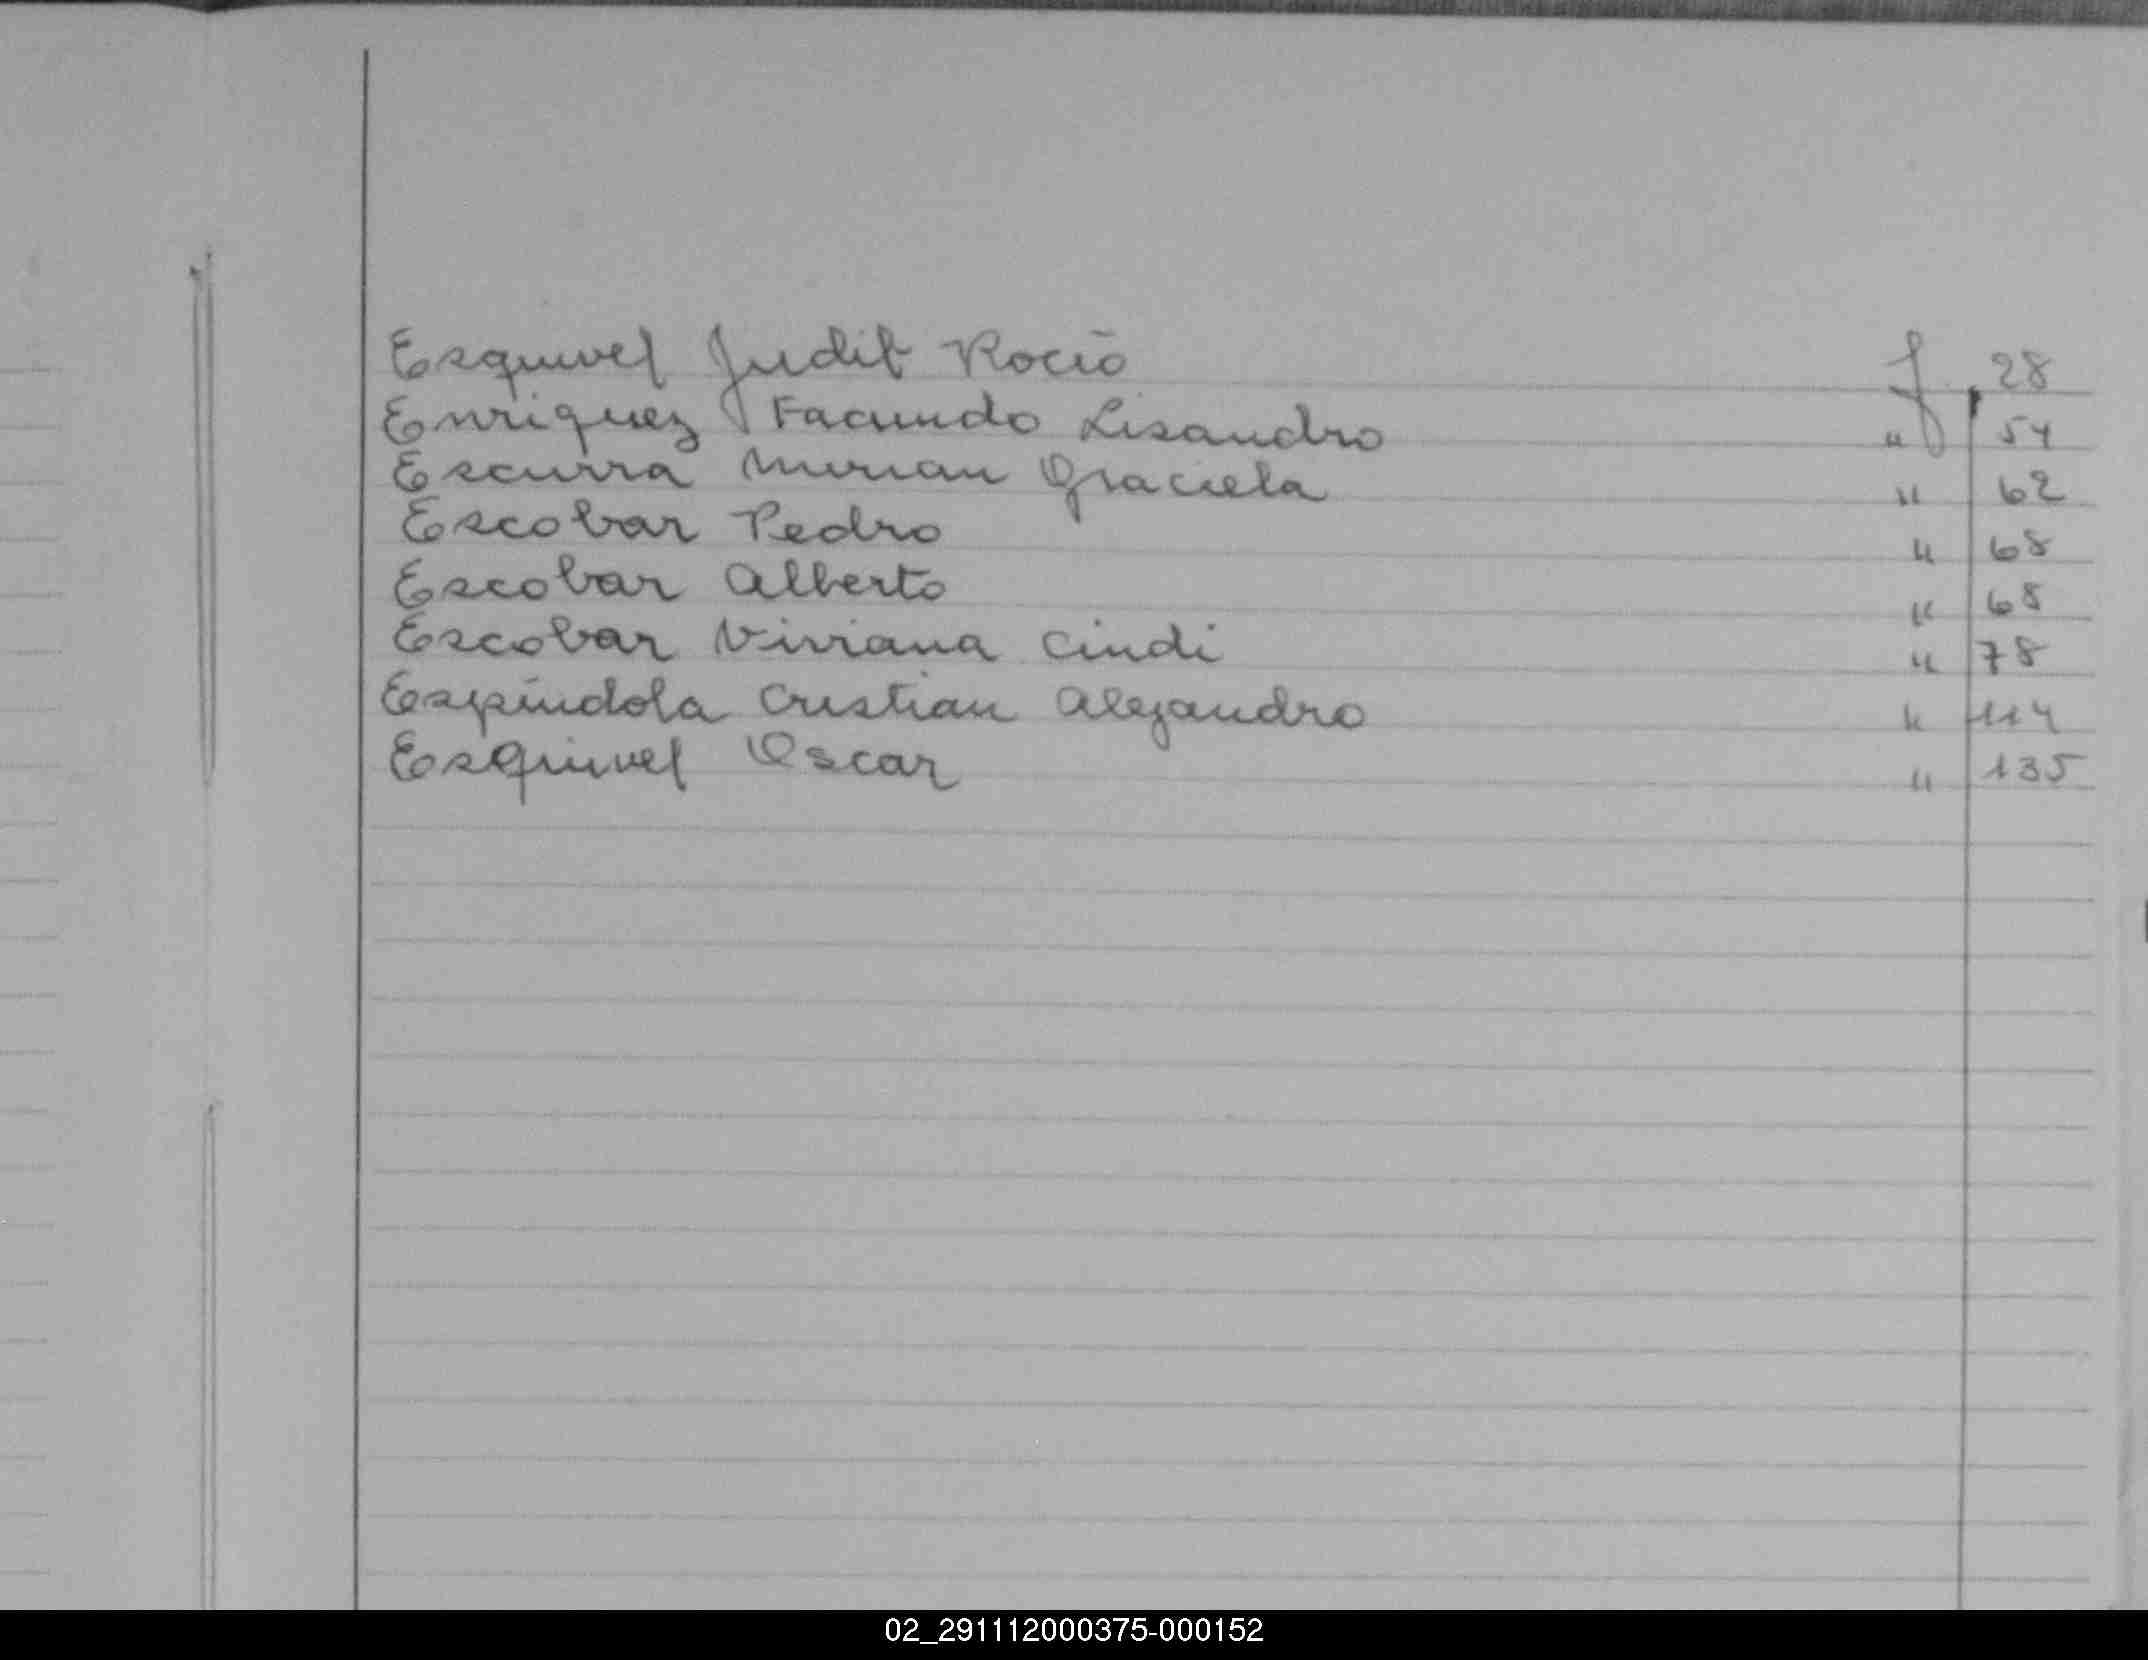 Esquivel Judit Rocío f 28
Enriquez Facundo Lisandro " 54
Escurra Mirian Graciela " 62
Escobar Pedro " 68
Escobar Alberto " 68
Escobar Viviana Cindi " 78
Espíndola Cristian Alejandro " 114
Esquivel Oscar " 135
02_291112000375-000152